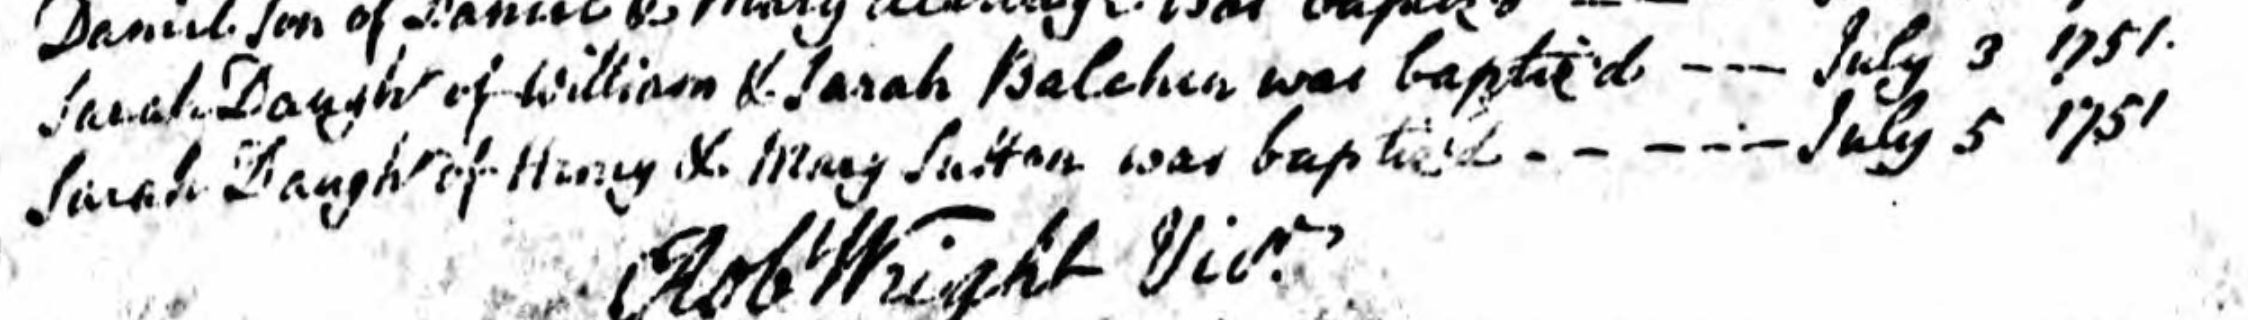 Daniel Son of Daniel & Mary was baptized
Sarah Daughr of William & Sarah Balchen was baptized --- July 3 1751.
Sarah Daughr of Henry & Mary Sutton was baptized - - - - - - July 5 1751
Robt Wright Vicr.